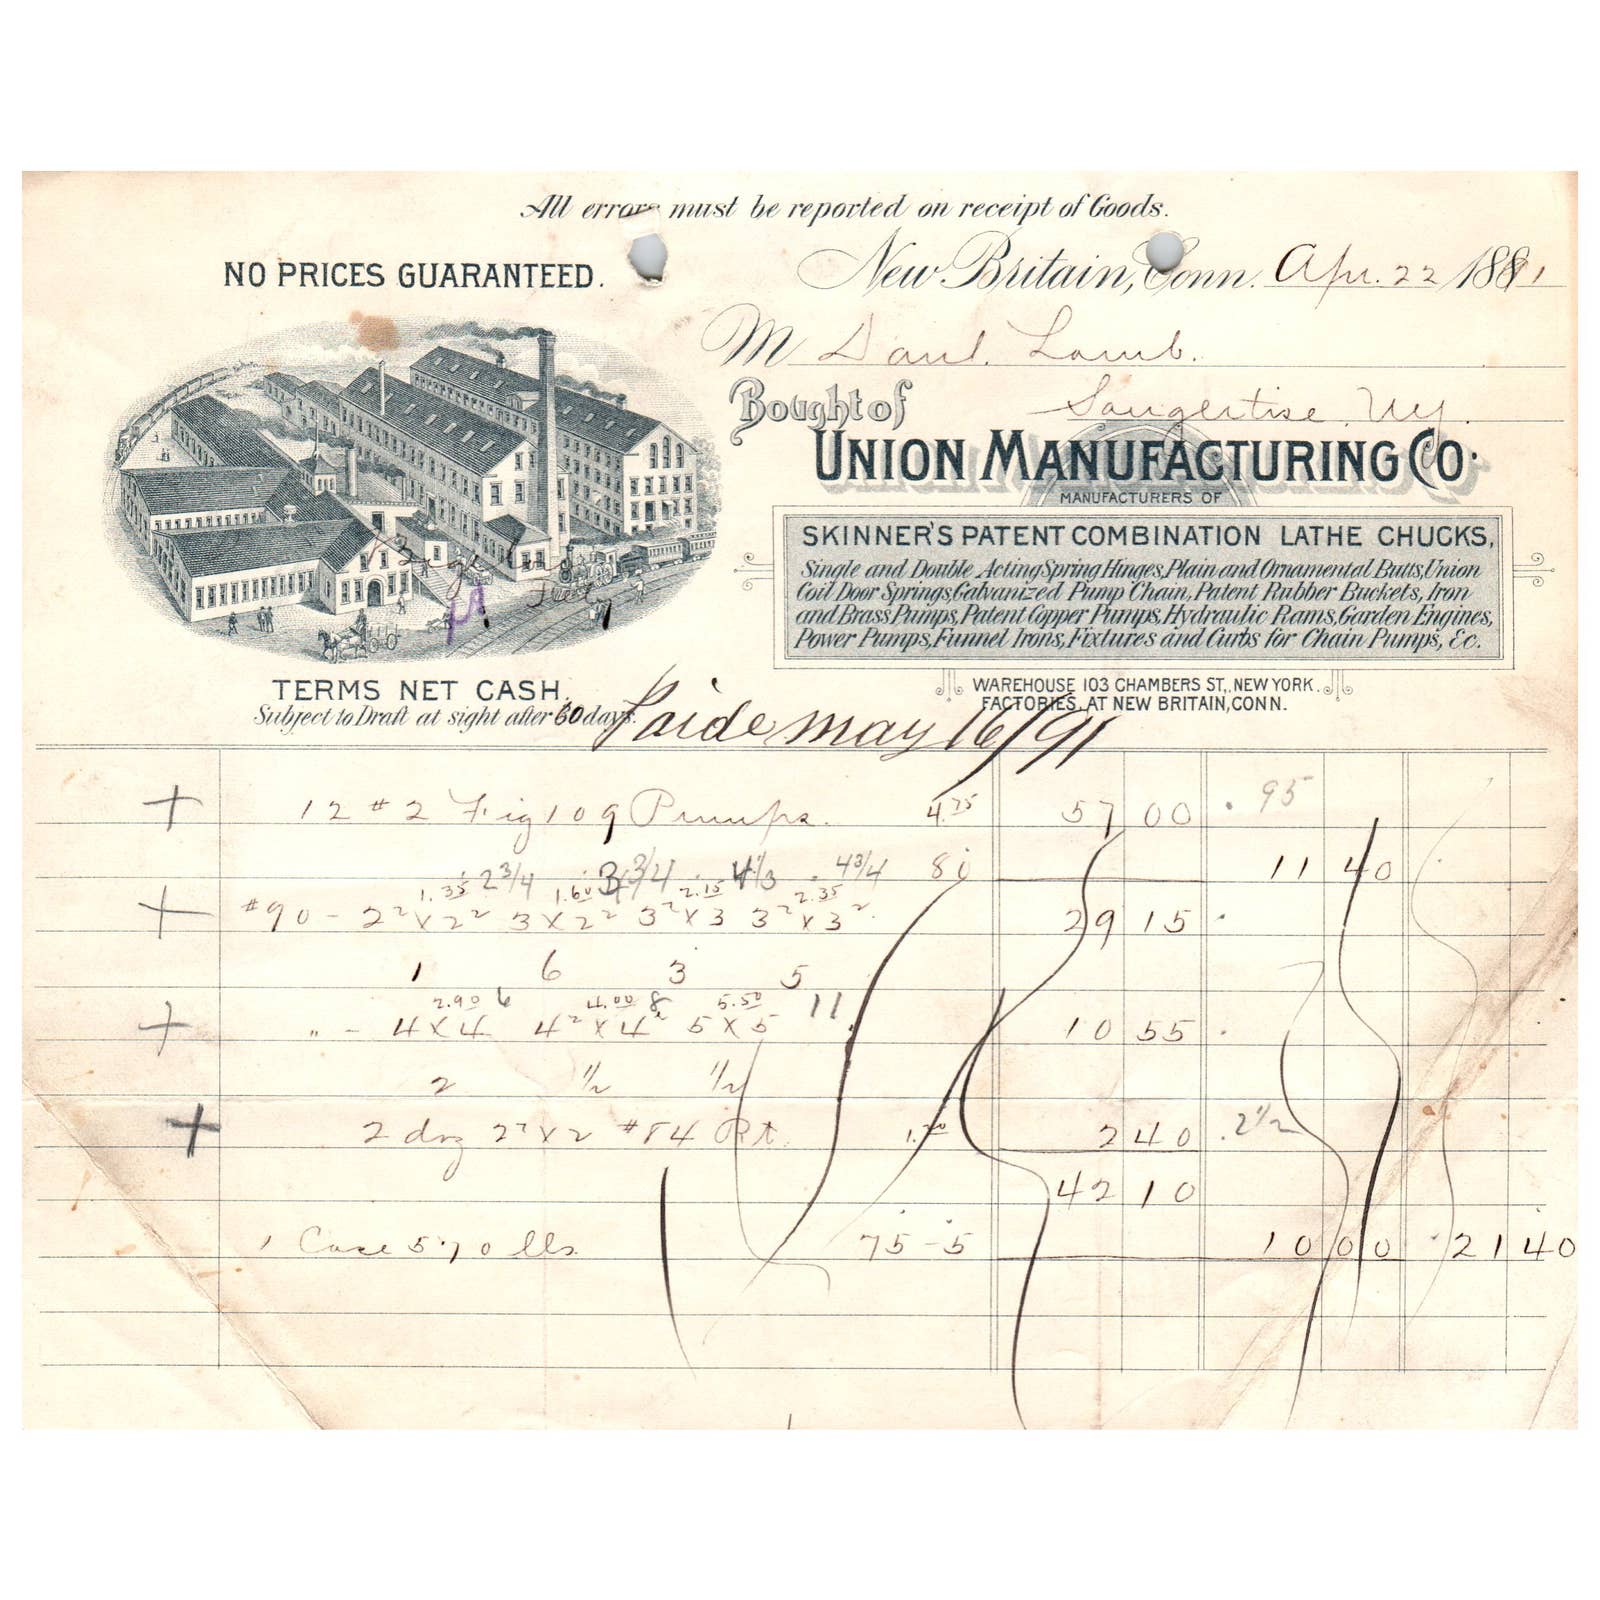 All errors must be reported on receipt of Goods.
NO PRICES GUARANTEED.
New Britain, Conn. Apr. 22 1891
M Danl. Lamb.
Bought of Saugertise, Ny.
UNION MANUFACTURING CO.
MANUFACTURERS OF
SKINNER'S PATENT COMBINATION LATHE CHUCKS,
Single and Double Acting Spring Hinges, Plain and Ornamental Butts, Union
Coil Door Springs, Galvanized Pump Chain, Patent Rubber Buckets, Iron
and Brass Pumps, Patent Copper Pumps, Hydraulic Rams, Garden Engines,
Power Pumps, Funnel Irons, Fixtures and Curbs for Chain Pumps, &c.
WAREHOUSE 103 CHAMBERS ST., NEW YORK.
FACTORIES, AT NEW BRITAIN, CONN.
TERMS NET CASH.
Subject to Draft at sight after 60 days.
Paide may 16/91
12 #2 Fig 109 Pumps. 4.75 57 00 . 95
2 3/4 3 3/4 4 1/3 4 3/4 80 11 40
1.35 1.60 2.15 2.35
#90 - 2² x 2² 3 x 2² 3² x 3 3² x 3² 29 15
1 6 3 5
2.90 6 4.00 8 5.50 11
" - 4 x 4 4² x 4² 5 x 5 10 55
2 1/2 1/2
2 doz 2² x 2 #84 Pt. 1.20 2 40 . 2 1/2
42 10
1 Case 570 lbs. 75 - 5 10 00 21 40